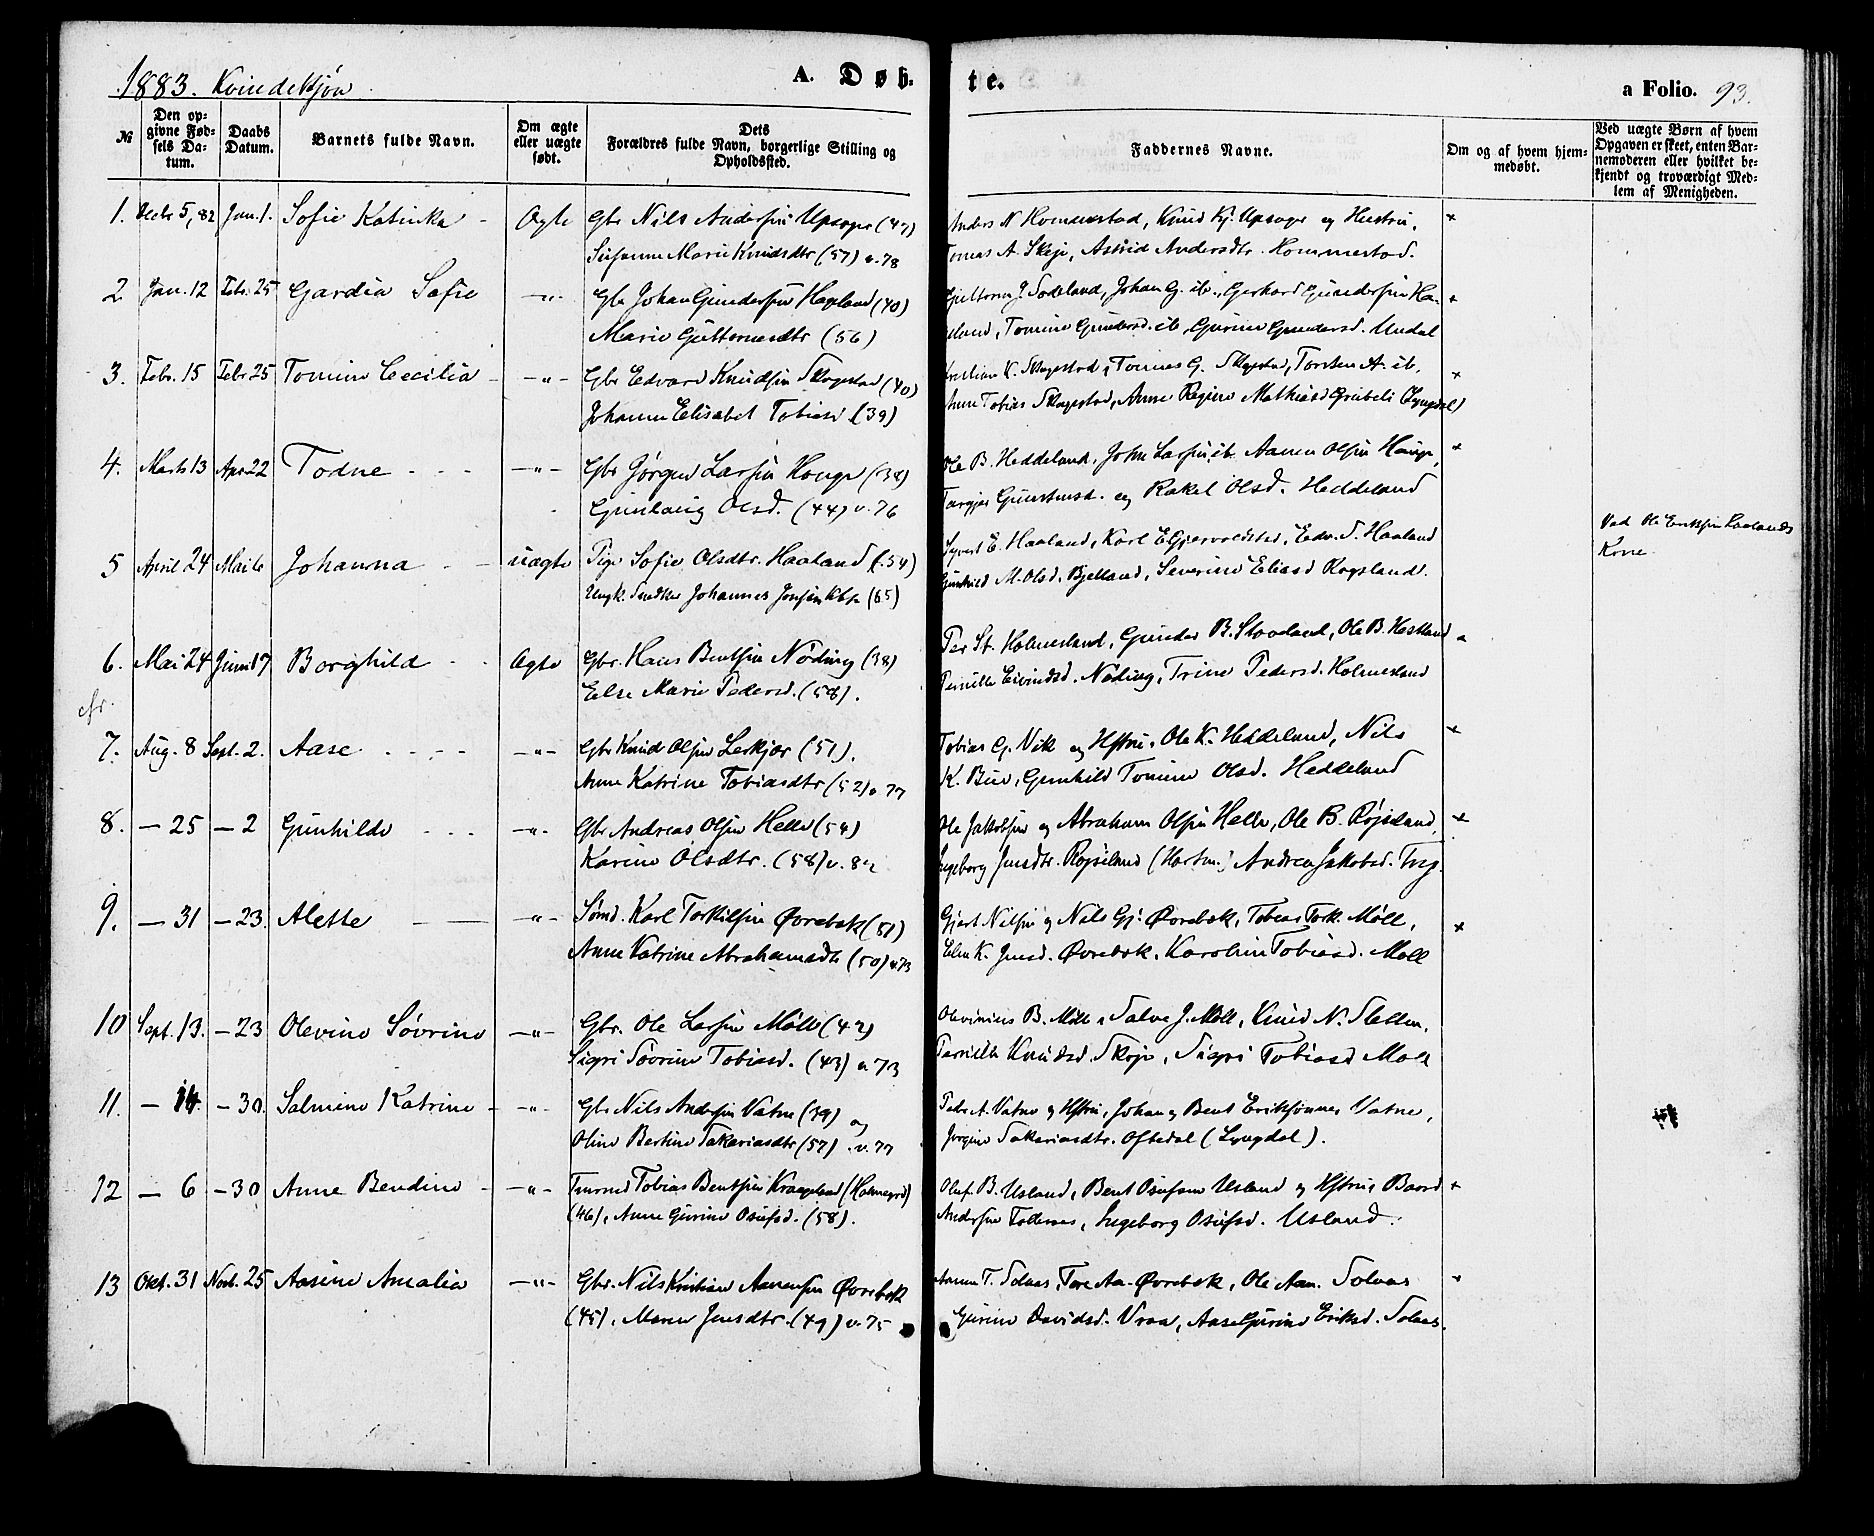 1883. Kvindekjøn
A. Døb-
te.
a Folio. 93.
№ | Den opgivne Fødsels Datum. | Daabs Datum. | Barnets fulde Navn. | Om ægte eller uægte født. | Dets Forældres fulde Navn, borgerlige Stilling og Opholdssted. | Faddernes Navne. | Om og af hvem hjemmedøbt. | Ved uægte Børn af hvem Opgaven er skeet, enten Barnemoderen eller hvilket bekjendt og troværdigt Medlem af Menigheden.
1. Decbr 5, 82 Jan. 1. Sofie Katinka - Ægte Gbr Nils Andersen Upsager (47) Anders N. Hommestad, Knud Kj. Upsager og Hustru, +
Susanne Marie Knudsdtr (57) v. 78 Tomas A. Skeje, Astrid Andersdtr. Hommestad.
2 Jan. 12 Febr. 25 Gardia Sofie —"— Gbr Johan Gundersen Hageland (40) Guttorm J. Sodeland, Johan G. ib., Gerhard Gundersen Ha- +
Marie Guttormsdtr (56) geland, Tomine Gundersd. ib, Gurine Gundersd. Undal
3. Febr. 15 Febr 25 Tomine Cecilia - —"— Gbr Edvard Knudsen Skagestad (40) Kristian K. Skagestad, Tomas G. Skagestad, Torsten A. ib. +
Johanne Elisabet Tobiasd (39) Anne Tobiasd Skagestad, Anne Regine Mathiasd Gribeli (Lyngdal)
4. Marts 13 Apr 22 Todne - - - —"— Gbr Jørgen Larsen Haugе (38) Ole B. Heddeland, John Larsen ib. Aanen Olsen Hauge, +
Gunlaug Olsd. (44) v. 76 Targjer Gunstensd. og Rakel Olsd. Heddeland
5 April 24 Mai 6 Johanna - - uægte Pige Sofie Olsdtr. Haaland (54) Syvert E. Haaland, Karl E Gjervoldstad, Edv. S. Haaland Ved Ole Eriksen Haalands
Ungk. Snedker Johannes Jensen (65) Gunhild M. Olsd. Bjelland, Severine Eliasd Røgsland. Kone.
6. Mai 24 Juni 17 Borghild - - Ægte Gbr. Hans Bentsen Nøding (38) Per St. Holmesland, Gunder B. Stoveland, Ole B. Hestland +
Else Marie Pedersd. (58). Pernille Eivindsd. Nøding, Trine Pedersd. Holmesland
cfr.
7. Aug. 8 Sept. 2. Aase - - - - —"— Gbr Knud Olsen Lerkjær (51). Tobias G. Vik og Hstru, Ole K. Heddeland, Nils +
Anne Katrine Tobiasdtr (52) v. 77 K. Bue, Gunhild Tomine Olsd. Heddeland
8. — 25 — 2 Gunhilde - - - —"— Gbr Andreas Olsen Helle (54) Ole Jakobsen og Abraham Olsen Helle, Ole B. Røjseland, +
Karine Olsdtr. (58) v. 82 Ingeborg Jensdtr. Røjseland (Hartm.) Andrea Jakobsd.
9. — 31 — 23. Alette - —— —"— Sømd. Karl Torkilsen Øvrebøk (51) Gjert Nilsen og Nils Gj. Øvrebøk, Tobias Tork. Møll, +
Anne Katrine Abrahamsdtr (50) v. 73 Elen K. Jensd. Øvrebøk, Karoline Tobiasd. Møll
10 Sept. 13. — 23 Olevine Søvrine —"— Gbr. Ole Larsen Møll (42) Olevinius B. Møll, Salve J. Møll, Knud N. Stellen,
Sigri Søvrine Tobiasd. (43) v. 73 Pernille Knudsd. Skøje, Sigri Tobiasd Møll
11. — 14. — 30. Salmine Katrine - —"— Gbr Nils Andersen Vatne (39) og Peder A. Vatne og Hstru, Johan og Bent Eriksønner Vatne,
Oline Bertine Sakariasdtr (57) v. 77 Jørgine Sakariasdtr. Oftedal (Lyngdal).
12 — 6 — 30 Anne Bendine - —"— Tmrmd Tobias Bentsen Kraageland (Holmegrd) Oluf B. Usland, Bent Osufsen Usland og Hstru, Baard +
(46), Anne Gurine Osufsd. (58). Andersen Follerås, Ingeborg Osufsd. Usland.
13 Okt. 31 Novb. 25 Aasine Amalia —"— Gbr. Nils Kristian Aanensen Øvrebøk Aanen T. Solaas, Tore Aa. Øvrebøk, Ole Aan. Solaas +
(45), Maren Jensdtr. (49) v. 75 Gurine Davidsd. Vraa, Aase Gurine Eriksd. Solaas.